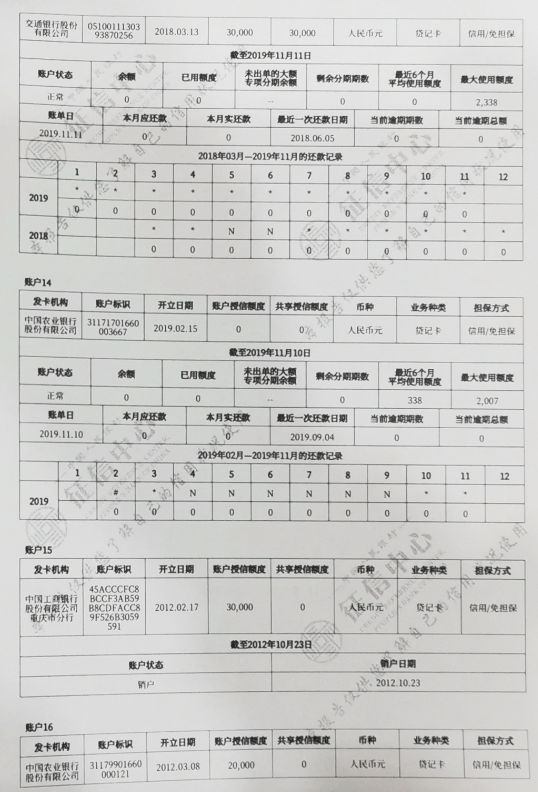 交通银行股份有限公司 05100111303 93870256 2018.03.13 30,000 30,000 人民币元 贷记卡 信用/免担保
截至2019年11月11日
账户状态 余额 已用额度 未出单的大额专项分期余额 剩余分期期数 最近6个月平均使用额度 最大使用额度
正常 0 0 -- 0 0 2,338
账单日 本月应还款 本月实还款 最近一次还款日期 当前逾期期数 当前逾期总额
2019.11.11 0 0 2018.06.05 0 0
2018年03月—2019年11月的还款记录
1 2 3 4 5 6 7 8 9 10 11 12
2019 * * * * * * * * * * *
0 0 0 0 0 0 0 0 0 0 0
2018 * * N N * * * * * *
0 0 0 0 0 0 0 0 0 0
账户14
发卡机构 账户标识 开立日期 账户授信额度 共享授信额度 币种 业务种类 担保方式
中国农业银行股份有限公司 31171701660 003667 2019.02.15 0 0 人民币元 贷记卡 信用/免担保
截至2019年11月10日
账户状态 余额 已用额度 未出单的大额专项分期余额 剩余分期期数 最近6个月平均使用额度 最大使用额度
正常 0 0 -- 0 338 2,007
账单日 本月应还款 本月实还款 最近一次还款日期 当前逾期期数 当前逾期总额
2019.11.10 0 0 2019.09.04 0 0
2019年02月—2019年11月的还款记录
1 2 3 4 5 6 7 8 9 10 11 12
2019 # * N N N N N N * *
0 0 0 0 0 0 0 0 0 0
账户15
发卡机构 账户标识 开立日期 账户授信额度 共享授信额度 币种 业务种类 担保方式
中国工商银行股份有限公司重庆市分行 45ACCCFC8 BCCF3AB59 B8CDFACC8 9F526B3059 591 2012.02.17 30,000 0 人民币元 贷记卡 信用/免担保
截至2012年10月23日
账户状态 销户日期
销户 2012.10.23
账户16
发卡机构 账户标识 开立日期 账户授信额度 共享授信额度 币种 业务种类 担保方式
中国农业银行股份有限公司 31179901660 000121 2012.03.08 20,000 0 人民币元 贷记卡 信用/免担保
征信中心
本报告仅供您了解自己的信用状况使用